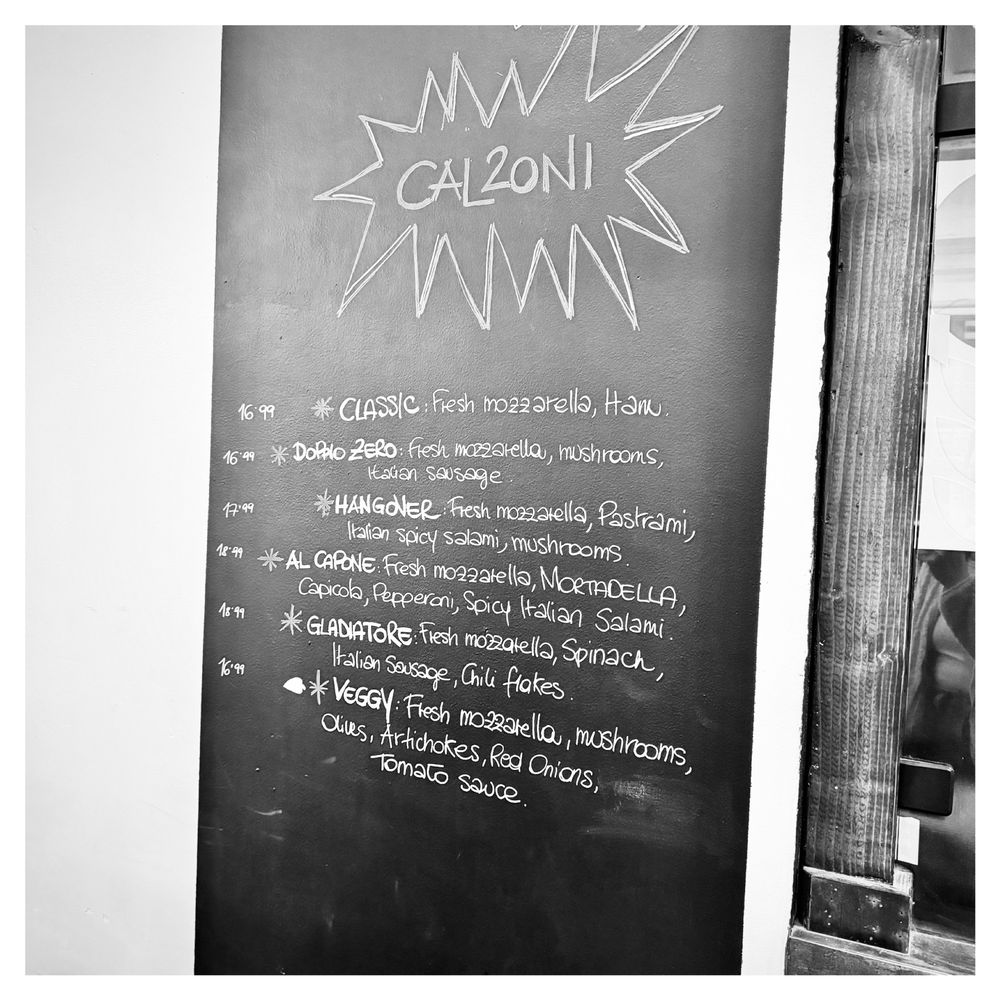 CALZONI
16.99 * CLASSIC: Fresh mozzarella, Ham.
16.99 * DOPPIO ZERO: Fresh mozzarella, mushrooms,
Italian sausage.
17.99 * HANGOVER: Fresh mozzarella, Pastrami,
Italian spicy salami, mushrooms.
18.99 * AL CAPONE: Fresh mozzarella, MORTADELLA,
Capicola, Pepperoni, Spicy Italian Salami.
18.99 * GLADIATORE: Fresh mozzarella, Spinach,
Italian Sausage, Chili flakes.
16.99 * VEGGY: Fresh mozzarella, mushrooms,
Olives, Artichokes, Red Onions,
Tomato sauce.